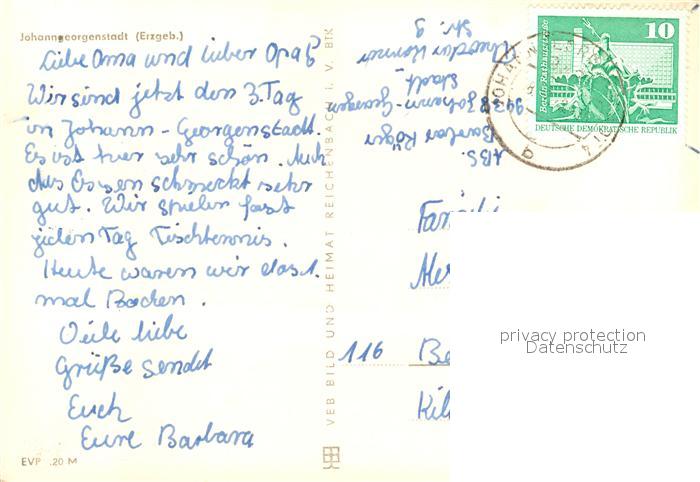 Johanngeorgenstadt (Erzgeb.)
Liebe Oma und lieber Opa!
Wir sind jetzt den 3. Tag
in Johann-Georgenstadt.
Es ist hier sehr schön. Auch
das Essen schmeckt sehr
gut. Wir spielen fast
jeden Tag Tischtennis.
Heute waren wir das 1.
mal Baden.
Viele liebe
Grüße sendet
Euch
Eure Barbara
EVP .20 M
VEB BILD UND HEIMAT REICHENBACH I. V. BTK
ABS.
Barbar
9438 Johann-Georgen
stadt
Theodor Körner
Str. 8
10
Berlin, Rathausstraße
DEUTSCHE DEMOKRATISCHE REPUBLIK
Fam
116 Be
privacy protection
Datenschutz